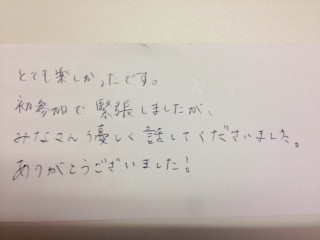 とても楽しかったです。
初参加で緊張しましたが、
みなさん優しく話してくださいました。
ありがとうございました!